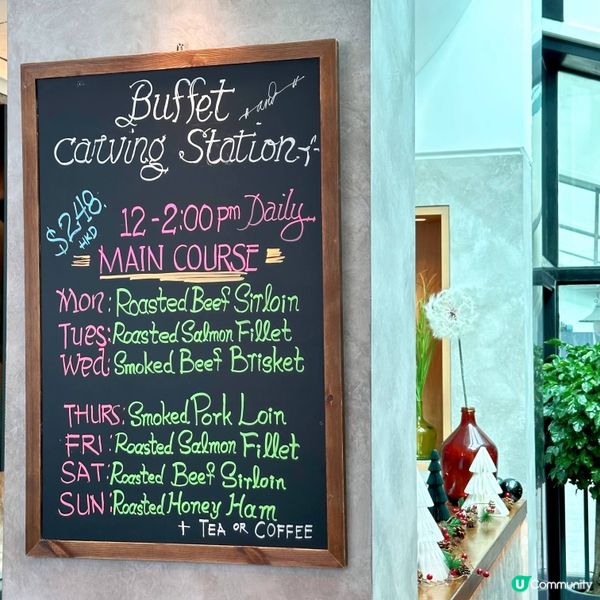 Buffet and
Carving Station
$248.
HKD
12-2:00pm Daily
MAIN COURSE
Mon: Roasted Beef Sirloin
Tues: Roasted Salmon Fillet
Wed: Smoked Beef Brisket
THURS: Smoked Pork Loin
FRI: Roasted Salmon Fillet
SAT: Roasted Beef Sirloin
SUN: Roasted Honey Ham
+ TEA OR COFFEE
U Community